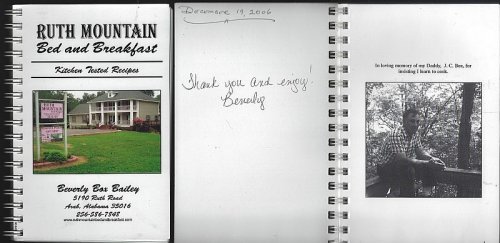 RUTH MOUNTAIN
Bed and Breakfast
Kitchen Tested Recipes
RUTH
MOUNTAIN
Beverly Box Bailey
5190 Ruth Road
Arab, Alabama 35016
256-586-7848
www.ruthmountainbedandbreakfast.com
December 19, 2006
Thank you and enjoy!
Beverly
In loving memory of my Daddy, J. C. Box, for
insisting I learn to cook.